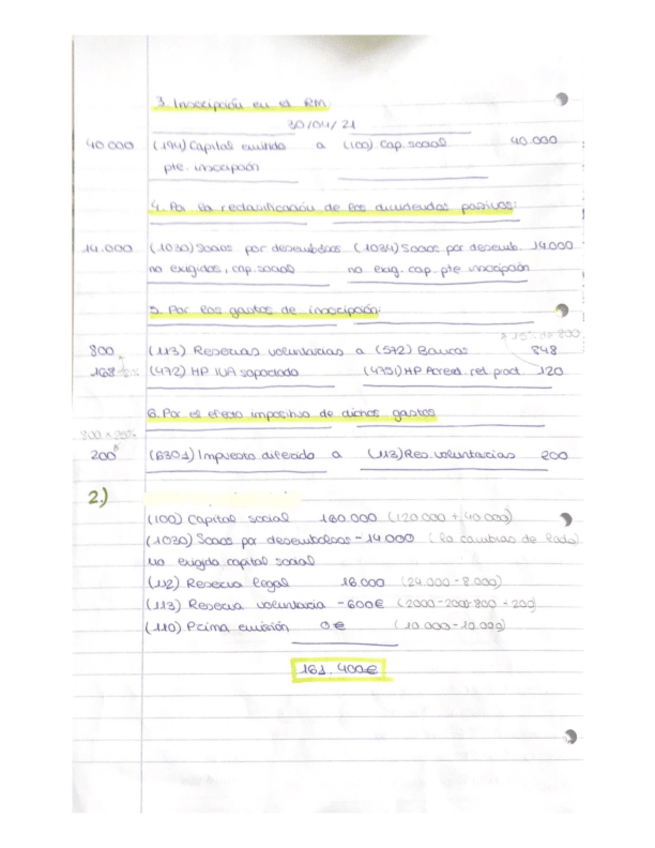 3. Inscripción en el RM
30/04/21
40.000 (194) Capital emitido a (100) Cap. social 40.000
pte. inscripción
4. Por la reclasificación de los dividendos pasivos:
14.000 (1030) Socios por desembolsos (1034) Socios por desemb. 14.000
no exigidos, cap. social no exig. cap. pte inscripción
5. Por los gastos de inscripción:
15% de 800
800 (113) Reservas voluntarias a (572) Bancos 848
168 (472) HP IVA soportado (4751) HP Acreed. ret. pract. 120
6. Por el efecto impositivo de dichos gastos
800 x 25%
200 (6301) Impuesto diferido a (113) Res. voluntarias 200
2.)
(100) Capital social 160.000 (120.000 + 40.000)
(1030) Socios por desembolsos -14.000 (la cambias de lado)
no exigido capital social
(112) Reserva legal 16.000 (24.000 - 8.000)
(113) Reserva voluntaria -600€ (2000-2000-800 + 200)
(110) Prima emisión 0€ (10.000-10.000)
161.400€